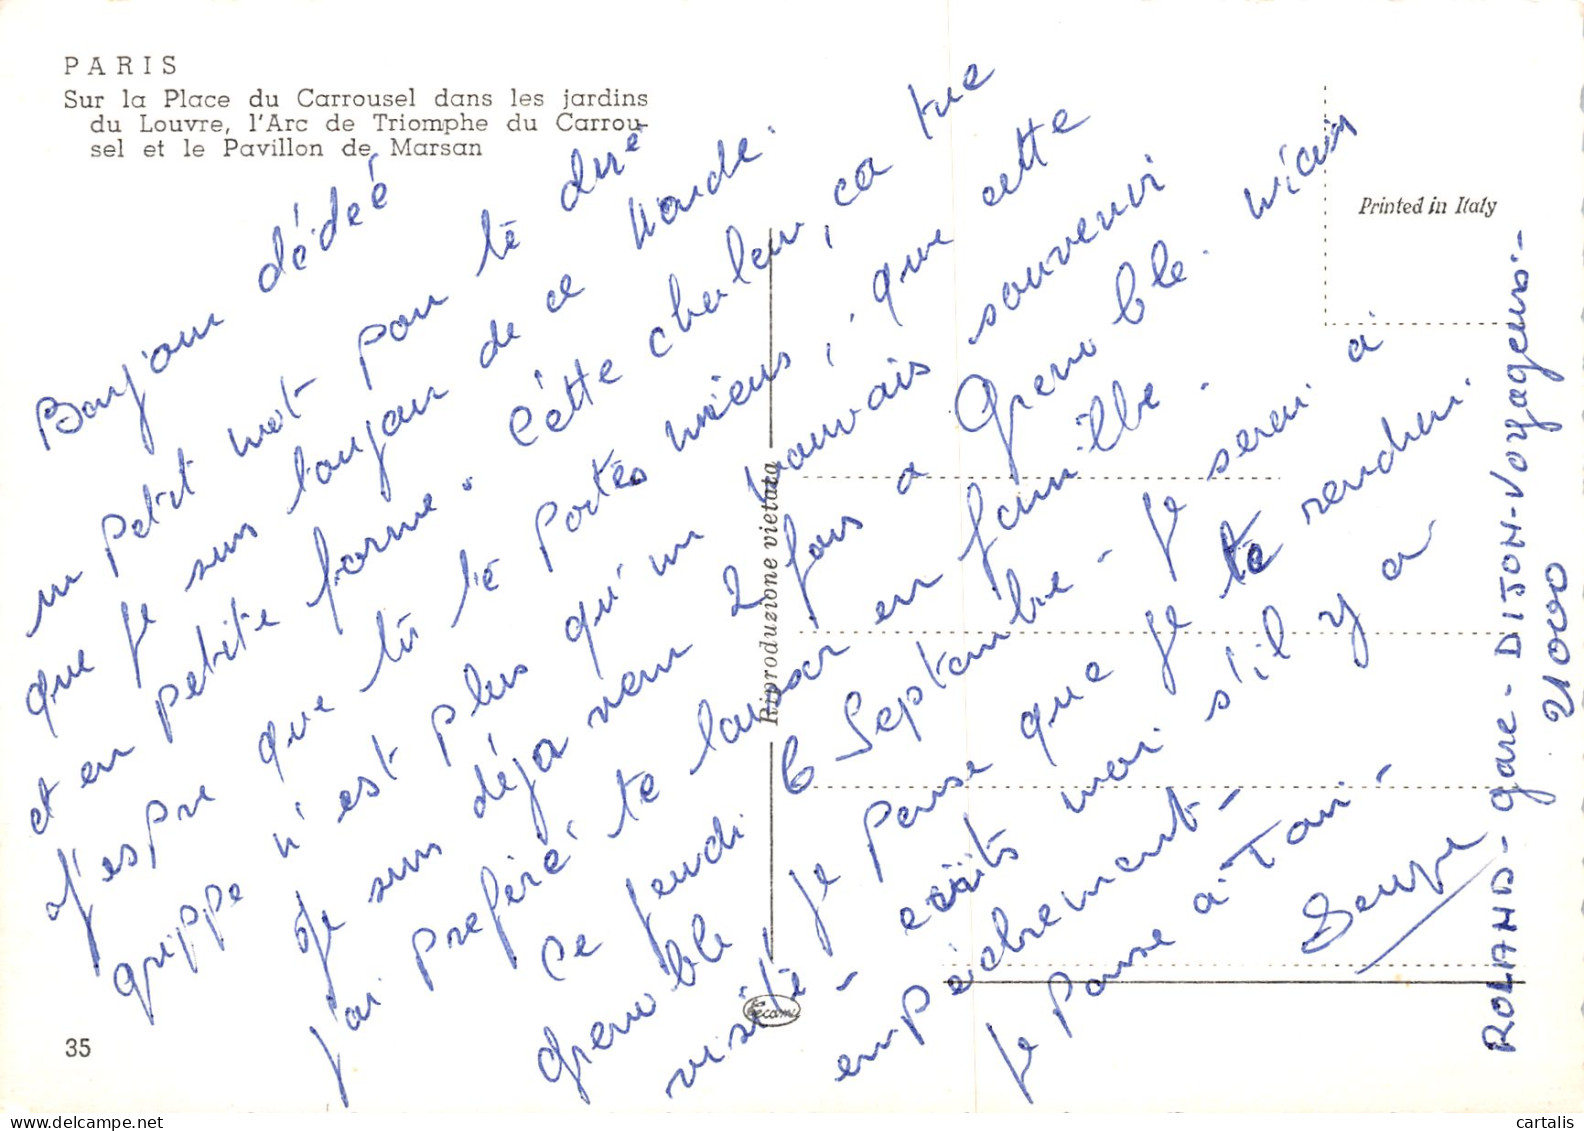 PARIS
Sur la Place du Carrousel dans les jardins
du Louvre, l'Arc de Triomphe du Carrou-
sel et le Pavillon de Marsan
Printed in Italy
Riproduzione vietata
Bonjour dédeé
un petit mot pour te diré
que je suis toujour de ce monde.
et en petite forme. Cétte chaleur, ça tue
J'espre que tu te portés mieus, que cette
grippe n'est plus qu'un mauvais souvenir
Je suis déja venu 2 fois a Grenoble. mais
j'ai preferé te laisser en famille.
ce jeudi 6 Septembre - Je serai à
Grenoble, je pense que je te rendrai
visite - ecrits moi s'il y a
empéchement -
Je pense à Toi -
Serge
ROLAND - gare - DIJON - Voyageurs -
21000
35
Cecami
cartalis